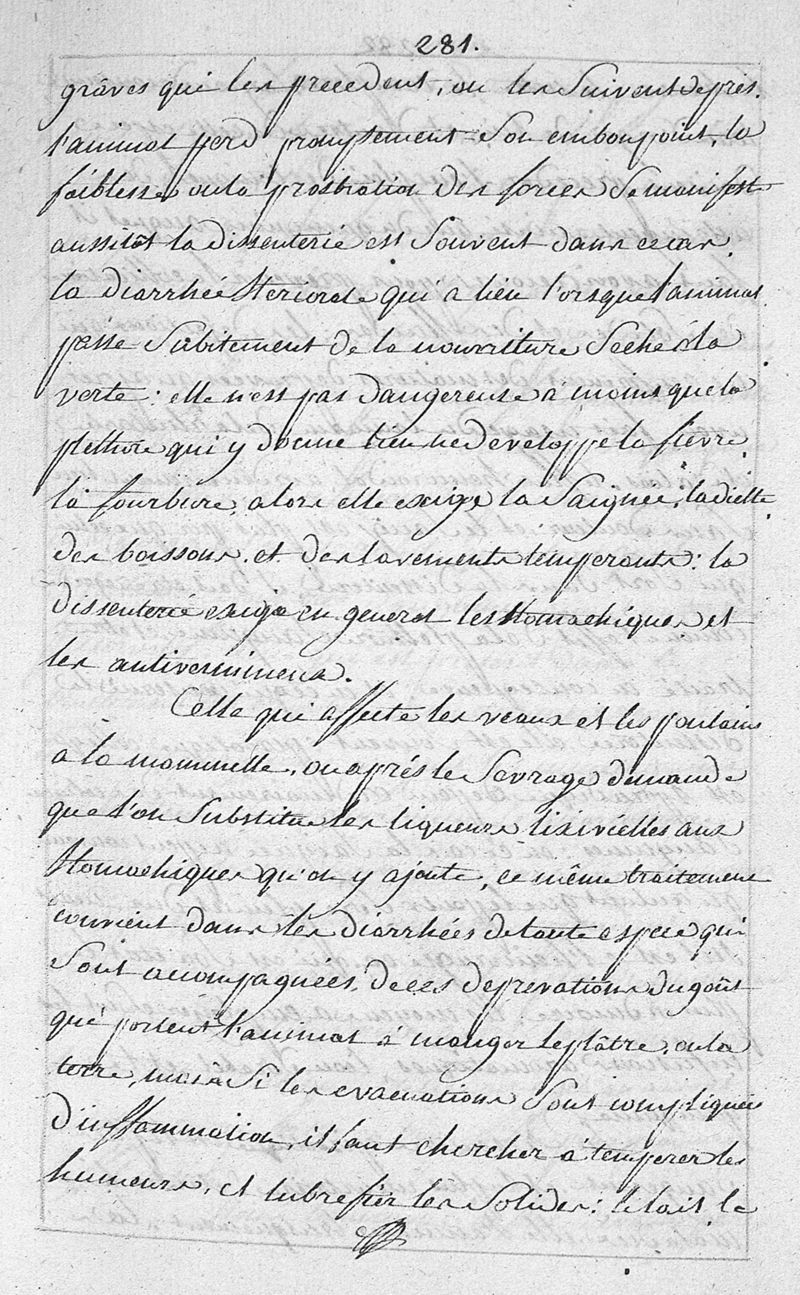 281.
gràves qui les precedent, ou les Suivent de près.
l'animal perd promptement Son embonpoint, la
faiblesse ou la prostration des forces Se manifeste
aussitôt la dissenterie est Souvent dans ce cas.
la diarrhée Stercorale qui a lieu lorsque l'animal
passe Subitement de la nourriture Seche à la
verte : elle n'est pas dangereuse à moins que la
plethure qui y donne lieu ne developpe la fievre
la fourbure, alors elle exige la Saignée, la diette
des boissons, et des lavements temperants : la
dissenterie exige en general les Stomachiques et
les antivermineux.
Celle qui affecte les veaux et les poulains
à la mammelle, ou aprés le Sevrage demande
que l'on Substitue les liqueurs lixivielles aux
Stomachiques qu'on y ajoute, ce même traitement
convient dans les diarrhées de toute espece qui
Sont accompagnées de ces depravations du goût
qui portent l'animal à manger le plâtre, ou la
terre, mais Si les evacuations Sont compliquées
d'inflammation, il faut chercher à temperer les
humeurs, et lubrefier les Solides : le lait le